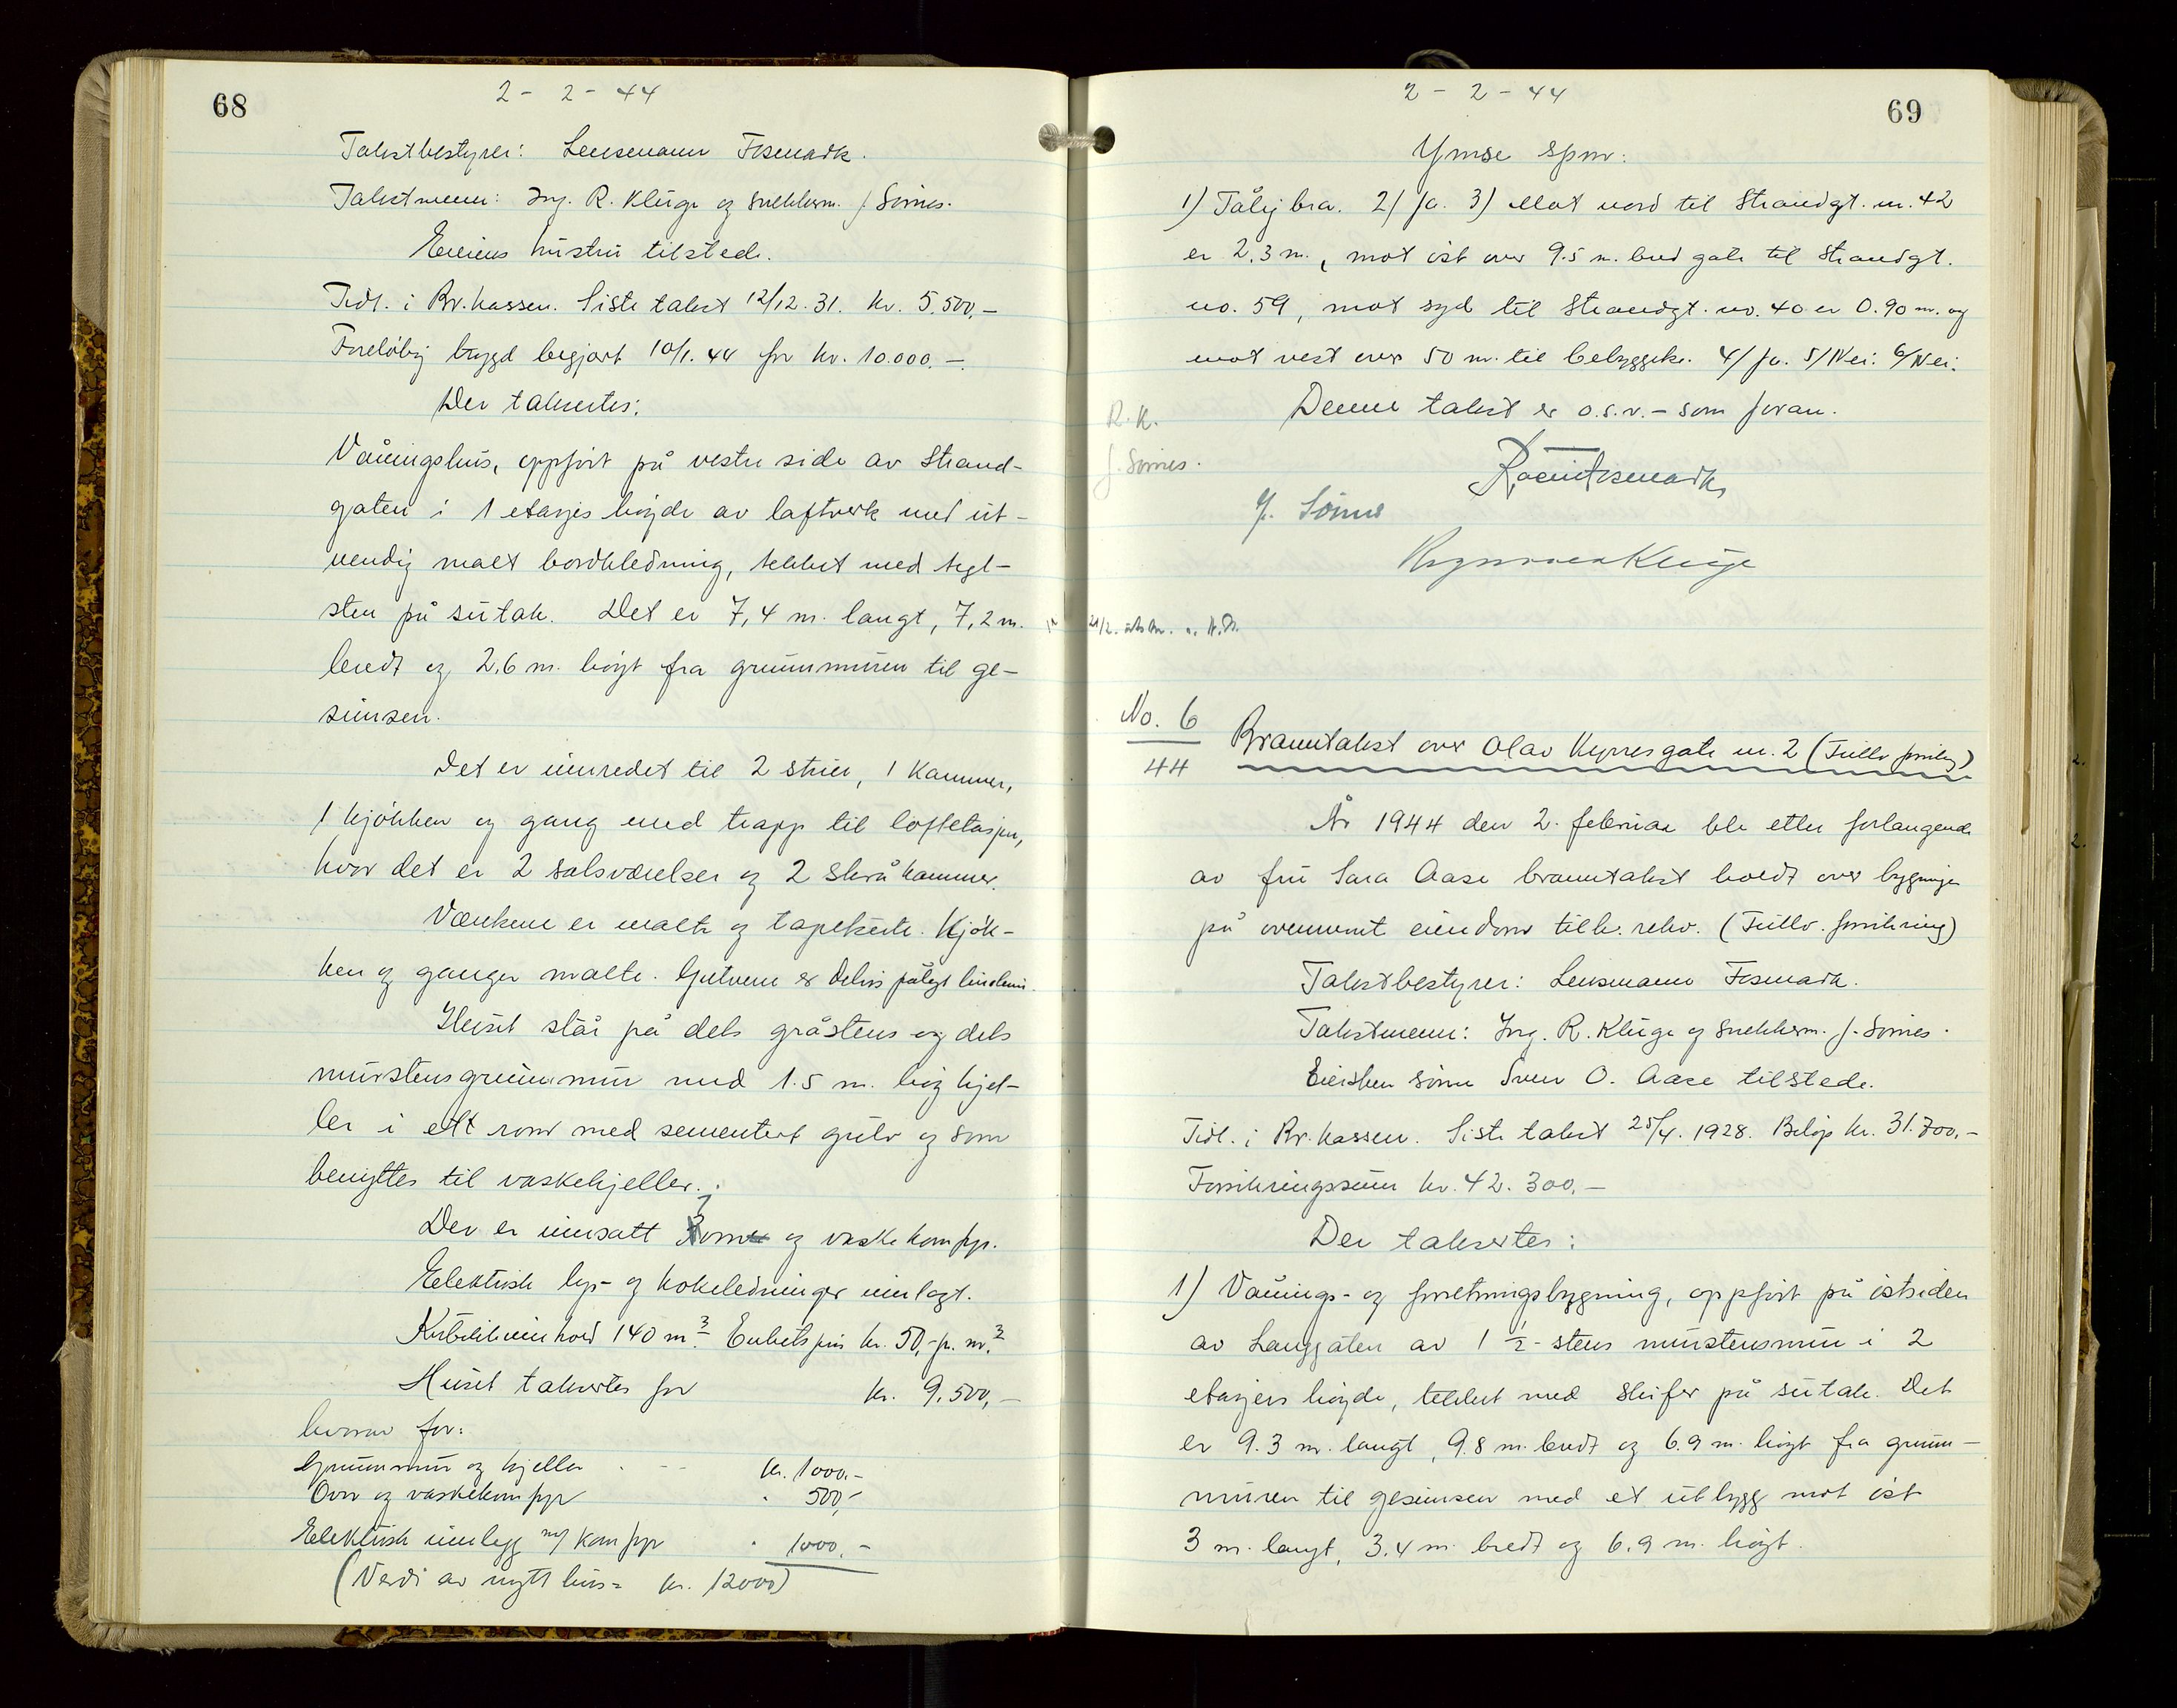 68
2 - 2 - 44
Takstbestyrer: Lensmann Fosmark.
Takstmenn: Ing. R. Kluge og snekkerm. J. Sømes.
Eierens hustru tilstede.
Tidl. i Br.kassen. Siste takst 12/12.31. kr. 5.500,-
Foreløbig trygd begjært 10/1.44 for kr. 10.000.-.
Der takseertes:
Våningshus, oppført på vestre side av Strand-
gaten i 1 etasjes høyde av laftverk med ut-
vendig malt bordkledning, tekket med tegl-
sten på sutak. Det er 7,4 m. langt, 7,2 m.
bredt og 2,6 m. høyt fra grunnmuren til ge-
simsen.
Det er innredet til 2 stuer, 1 kammer,
1 kjøkken og gang med trapp til loftetasjen,
hvor det er 2 solsværelser og 2 skråkammer.
Værelsene er malte og tapetserte. Kjøk-
ken og ganger malte. Gulvene er delvis pålagt linoleum.
Huset står på dels gråstens og dels
murstensgrunnmur med 1.5 m. høg kjel-
ler i ett rom med sementert gulv og som
benyttes til vaskekjeller.
Der er innsatt og vaskekomfyr.
Eelektrisk lys- og kokeledninger innlagt.
Kubikkinnhold 140 m³. Enhetspris kr. 50,- p. m.³
Huset takseertes for kr. 9.500,-
hvorav for:
Grunnmur og kjeller - - kr. 1000.-
Ovn og vaskekomfyr " 500,-
Eelektrisk innlegg m/ komfyr " 1000.-
(Verdi av nytt hus = kr. 12000)
69
2 - 2 - 44
Ymse spm:
1) Tålig bra. 2) Ja. 3) Mot nord til Strandgt. nr. 42
er 2.3 m., mot øst over 9.5 m. bred gate til Strandgt.
no. 59, mot syd til Strandgt. no. 40 er 0.90 m. og
mot vest over 50 m. til bebyggelse. 4/ Ja. 5/ Nei. 6/ Nei.
Denne takst er o.s.v. - som foran.
R.K.
J. Sømes.
J. Sømes
Kluge
21/2.
No. 6
44
Branntakst over Olav Kyrresgate nr. 2 (Fullv. forsikring)
År 1944 den 2. februar ble etter forlangende
av fru Sara Aase branntakst holdt over bygningen
på ovennevnt eiendom tilh. rekv. (Fullv. forsikring)
Takstbestyrer: Lensmann Fosmark.
Takstmenn: Ing. R. Kluge og snekkerm. J. Sømes.
Eierskens sønn Sven O. Aase tilstede.
Tidl. i Br.kassen. Siste takst 25/4. 1928. Beløp kr. 31.700,-
Forsikringssum kr. 42.300,-
Der takseertes:
1) Vånings- og forretningsbygning, oppført på østsiden
av Langgaten av 1 ½-stens murstensmur i 2
etasjers høyde, tekket med skifer på sutak. Det
er 9.3 m. langt, 9.8 m. bredt og 6.9 m. høyt fra grunn-
muren til gesimsen med et utbygg mot øst
3 m. langt, 3.4 m. bredt og 6.9 m. høyt.